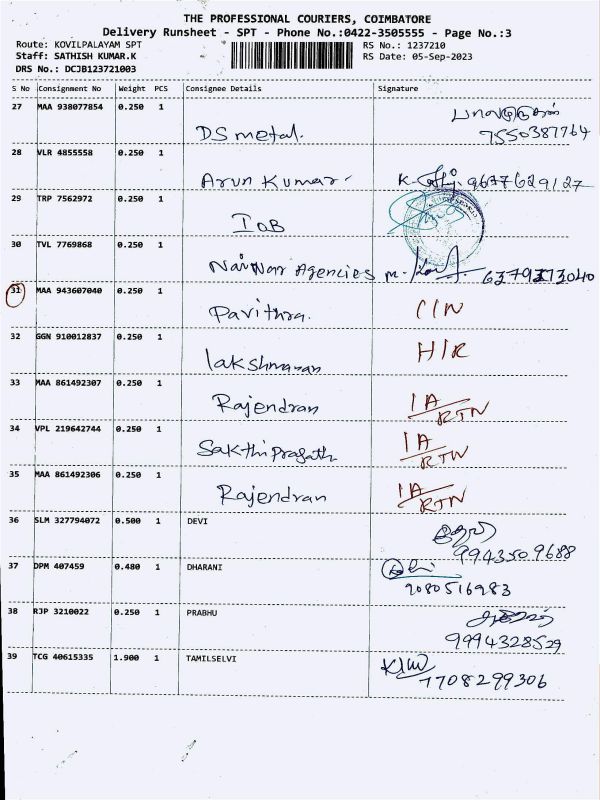 THE PROFESSIONAL COURIERS, COIMBATORE
Delivery Runsheet - SPT - Phone No.:0422-3505555 - Page No.:3
Route: KOVILPALAYAM SPT RS No.: 1237210
Staff: SATHISH KUMAR.K RS Date: 05-Sep-2023
DRS No.: DCJB123721003
S No Consignment No Weight PCS Consignee Details Signature
27 MAA 938077854 0.250 1
DS metal. 7550387764
28 VLR 4855558 0.250 1
Arun Kumar. 9677629127
29 TRP 7562972 0.250 1
IOB
30 TVL 7769868 0.250 1
Naiwar Agencies
31 MAA 943607040 0.250 1
Pavithra. C/N
32 GGN 910012837 0.250 1
lakshmanan H/R
33 MAA 861492307 0.250 1
Rajendran IA
RTN
34 VPL 219642744 0.250 1
Sakthiprasath IA
RTN
35 MAA 861492306 0.250 1
Rajendran IA
RTN
36 SLM 327794072 0.500 1 DEVI
9943509688
37 DPM 407459 0.480 1 DHARANI
9080516983
38 RJP 3210022 0.250 1 PRABHU
9994328529
39 TCG 40615335 1.900 1 TAMILSELVI
7708299306